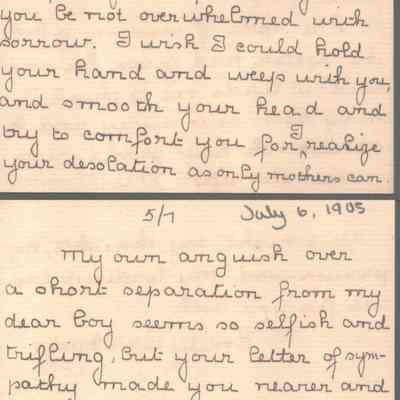 you be not overwhelmed with
sorrow. I wish I could hold
your hand and weep with you,
and smooth your head and
try to comfort you for, I realize
your desolation as only mothers can.
5/7 July 6, 1905
My own anguish over
a short separation from my
dear boy seems so selfish and
trifling, but your letter of sym-
pathy made you nearer and